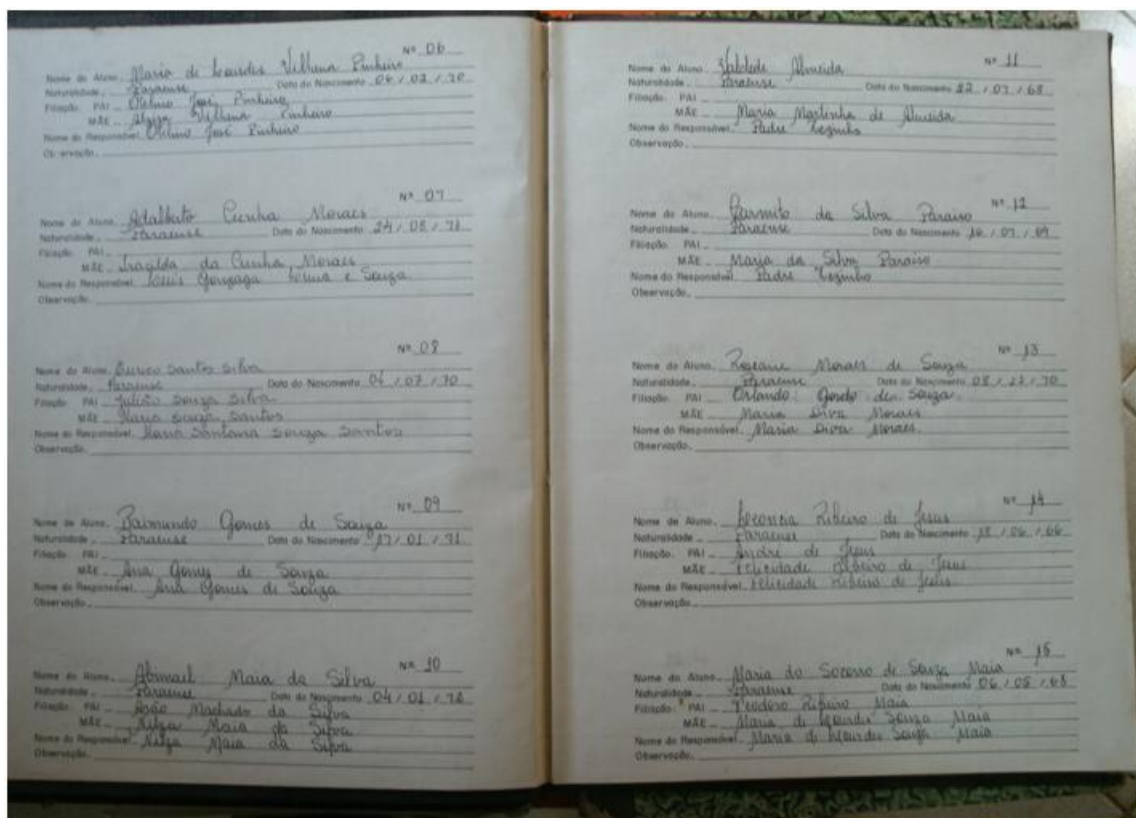 Nº 06
Nome do Aluno Maria de Lourdes Vilhena Pinheiro
Naturalidade Paraense Data do Nascimento 04 / 02 / 70
Filiação PAI José Pinheiro
MÃE Vilhena Pinheiro
Nome do Responsável José Pinheiro
Observação
Nº 07
Nome do Aluno Adalberto Cunha Moraes
Naturalidade Paraense Data do Nascimento 24 / 08 / 71
Filiação PAI
MÃE Iracilda da Cunha Moraes
Nome do Responsável Luis Gonzaga e Souza
Observação
Nº 08
Nome do Aluno Eurico Santos Silva
Naturalidade Paraense Data do Nascimento 04 / 07 / 70
Filiação PAI Julião Souza Silva
MÃE Maria Souza Santos
Nome do Responsável Maria Santana Souza Santos
Observação
Nº 09
Nome do Aluno Raimundo Gomes de Souza
Naturalidade Paraense Data do Nascimento 17 / 01 / 71
Filiação PAI
MÃE Ana Gomes de Souza
Nome do Responsável Ana Gomes de Souza
Observação
Nº 10
Nome do Aluno Abimael Maia da Silva
Naturalidade Paraense Data do Nascimento 04 / 01 / 72
Filiação PAI João Machado da Silva
MÃE Nilza Maia da Silva
Nome do Responsável Nilza Maia da Silva
Observação
Nº 11
Nome do Aluno Almeida
Naturalidade Paraense Data do Nascimento 22 / 07 / 68
Filiação PAI
MÃE Maria Martinha de Almeida
Nome do Responsável Padre
Observação
Nº 12
Nome do Aluno da Silva Paraiso
Naturalidade Paraense Data do Nascimento 16 / 07 / 69
Filiação PAI
MÃE Maria da Silva Paraiso
Nome do Responsável Padre
Observação
Nº 13
Nome do Aluno Roseane Moraes de Souza
Naturalidade Paraense Data do Nascimento 08 / 12 / 70
Filiação PAI Orlando de Souza
MÃE Maria Diva Moraes
Nome do Responsável Maria Diva Moraes
Observação
Nº 14
Nome do Aluno Ribeiro de Jesus
Naturalidade Paraense Data do Nascimento 18 / 06 / 66
Filiação PAI André de Jesus
MÃE Felicidade Ribeiro de Jesus
Nome do Responsável Felicidade Ribeiro de Jesus
Observação
Nº 15
Nome do Aluno Maria do Socorro de Souza Maia
Naturalidade Paraense Data do Nascimento 06 / 05 / 68
Filiação PAI Teodoro Ribeiro Maia
MÃE Maria de Lourdes Souza Maia
Nome do Responsável Maria de Lourdes Souza Maia
Observação